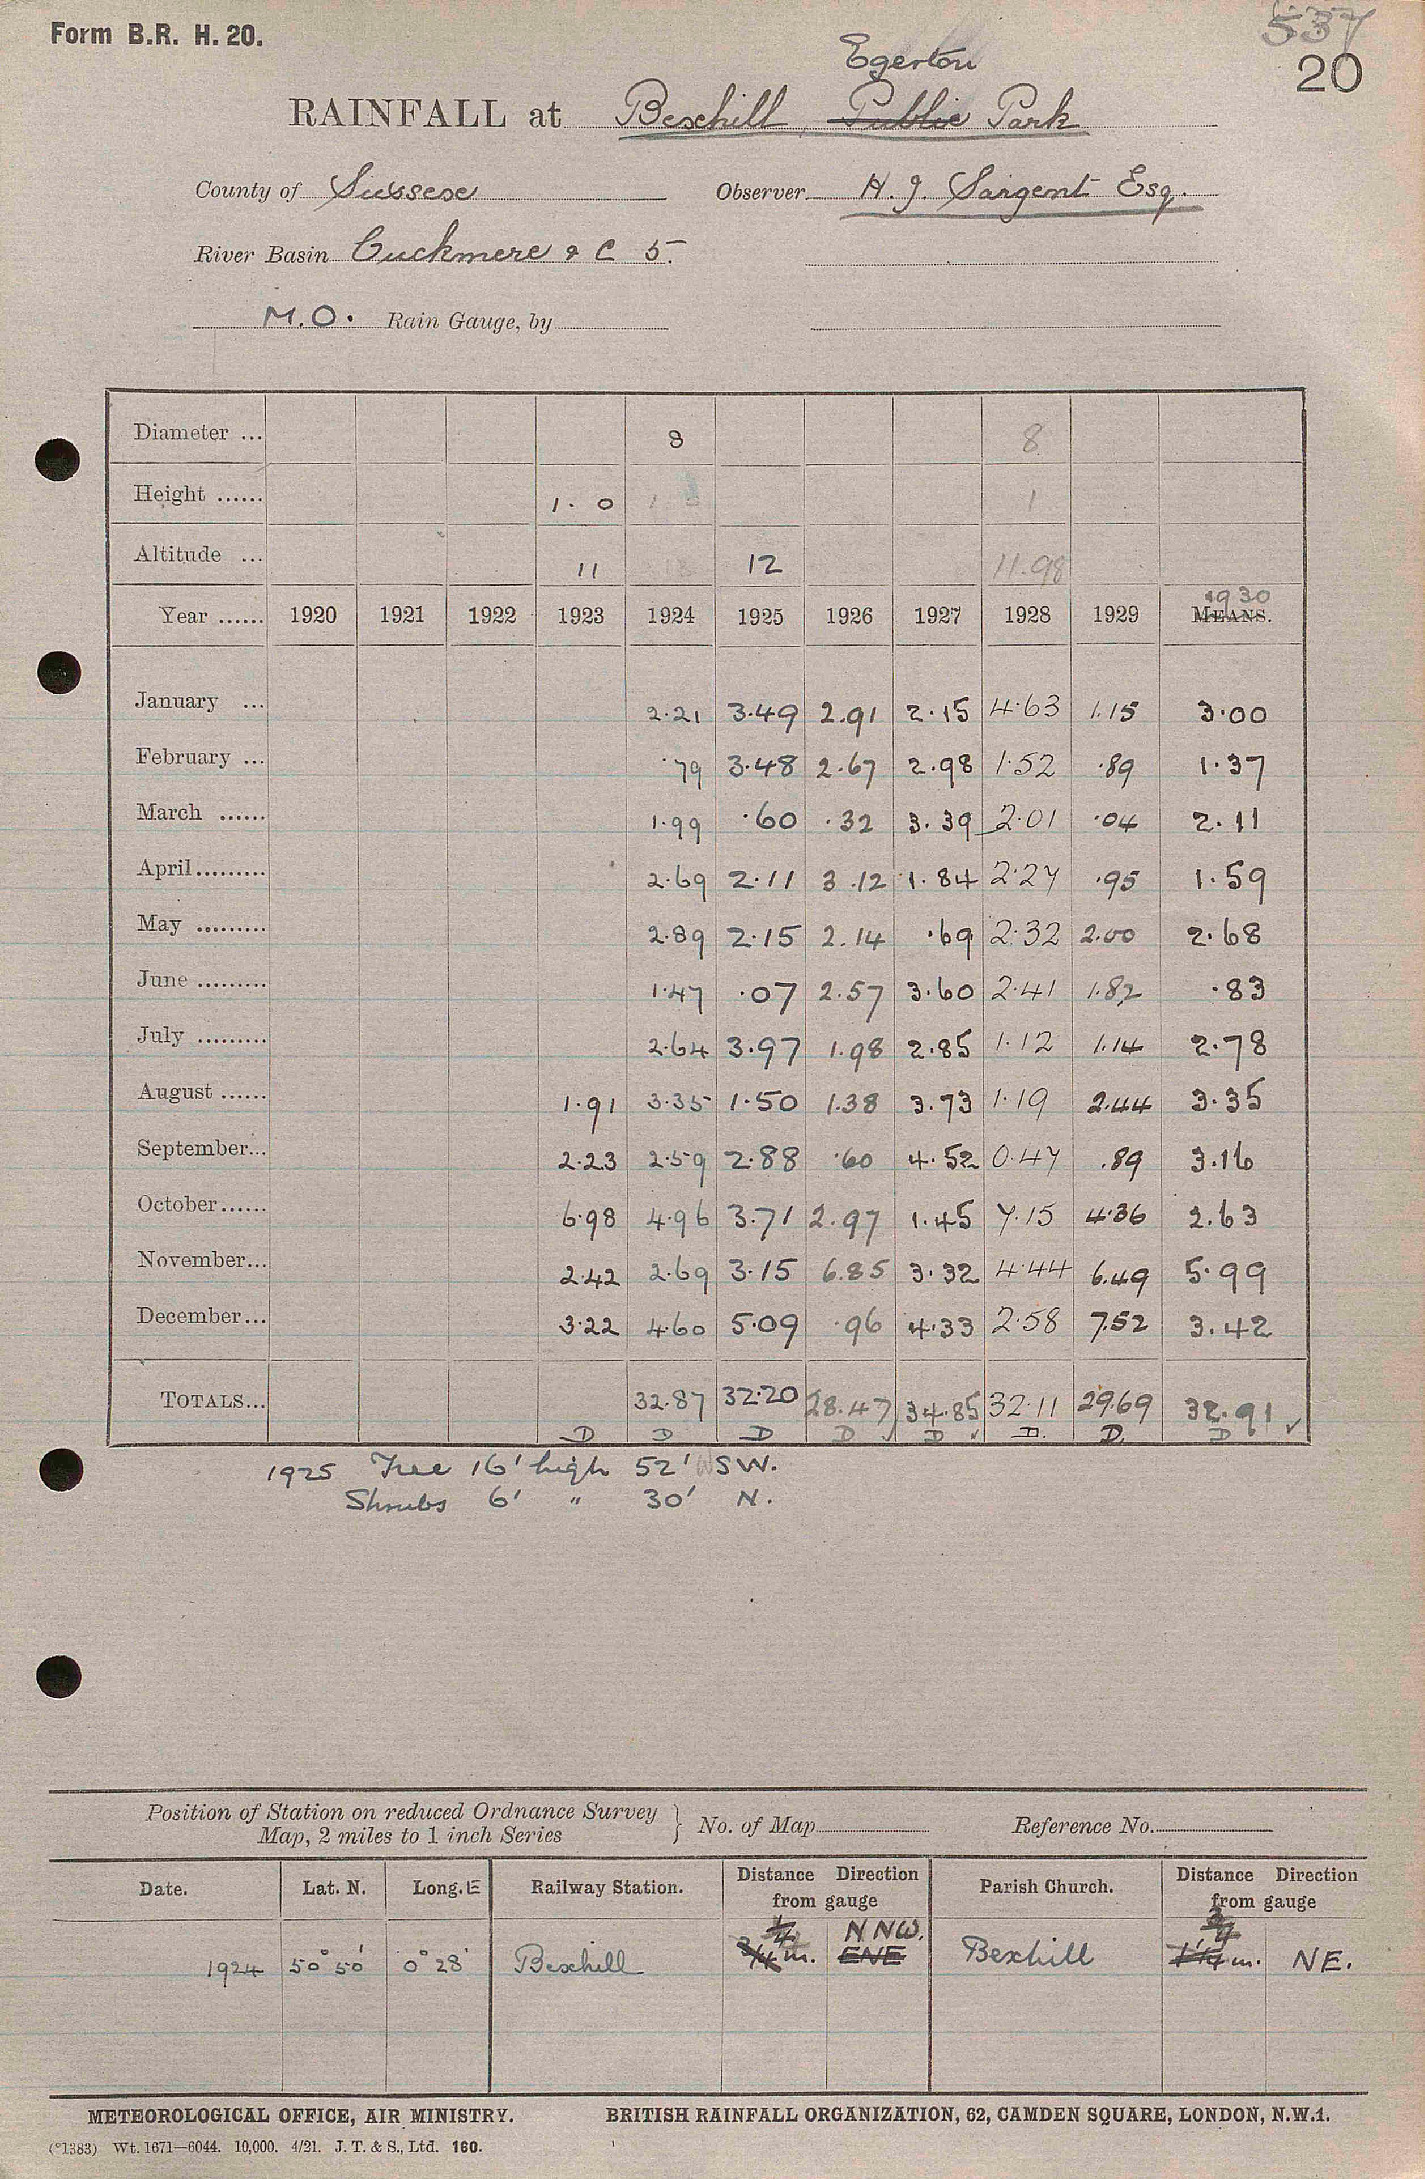 Form B.R. H. 20.
537
20
Egerton
RAINFALL at Bexhill, Public Park
County of Sussex Observer H. J. Sargent Esq.
River Basin Cuckmere & C 5.
M.O. Rain Gauge, by
Diameter ... 8 8
Height ...... 1. 0 1 1
Altitude ... 11 12 11.98
1930
Year ...... 1920 1921 1922 1923 1924 1925 1926 1927 1928 1929 MEANS.
January ... 2.21 3.49 2.91 2.15 4.63 1.15 3.00
February ... .79 3.48 2.67 2.98 1.52 .89 1.37
March ...... 1.99 .60 .32 3.39 2.01 .04 2.11
April ......... 2.69 2.11 3.12 1.84 2.27 .95 1.59
May ......... 2.89 2.15 2.14 .69 2.32 2.00 2.68
June ......... 1.47 .07 2.57 3.60 2.41 1.82 .83
July ......... 2.64 3.97 1.98 2.85 1.12 1.14 2.78
August ...... 1.91 3.35 1.50 1.38 3.73 1.19 2.44 3.35
September... 2.23 2.59 2.88 .60 4.52 0.47 .89 3.16
October...... 6.98 4.96 3.71 2.97 1.45 7.15 4.36 2.63
November... 2.42 2.69 3.15 6.85 3.32 4.44 6.49 5.99
December... 3.22 4.60 5.09 .96 4.33 2.58 7.52 3.42
TOTALS... 32.87 32.20 28.47 34.85 32.11 29.69 32.91 ✓
D D D D D D. D. D
1925 Tree 16' high 52' SW.
Shrubs 6' " 30' N.
Position of Station on reduced Ordnance Survey
Map, 2 miles to 1 inch Series } No. of Map Reference No.
Date. Lat. N. Long. E Railway Station. Distance Direction from gauge Parish Church. Distance Direction from gauge
1/4 NNW. 3/4
1924 50° 50' 0° 28' Bexhill 3/4 m. ENE Bexhill 1 1/4 m. NE.
METEOROLOGICAL OFFICE, AIR MINISTRY. BRITISH RAINFALL ORGANIZATION, 62, CAMDEN SQUARE, LONDON, N.W.1.
(*1383) Wt. 1671—6044. 10,000. 4/21. J. T. & S., Ltd. 160.